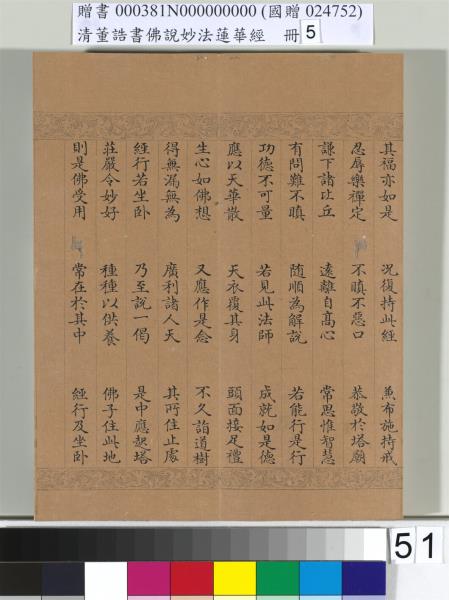 贈書 000381N000000000 (國贈 024752)
清董誥書佛說妙法蓮華經 冊 5
其福亦如是 況復持此經 兼布施持戒
忍辱樂禪定 不瞋不惡口 恭敬於塔廟
謙下諸比丘 遠離自高心 常思惟智慧
有問難不瞋 隨順為解說 若能行是行
功德不可量 若見此法師 成就如是德
應以天華散 天衣覆其身 頭面接足禮
生心如佛想 又應作是念 不久詣道樹
得無漏無為 廣利諸人天 其所住止處
經行若坐卧 乃至說一偈 是中應起塔
莊嚴令妙好 種種以供養 佛子住此地
則是佛受用 常在於其中 經行及坐卧
51